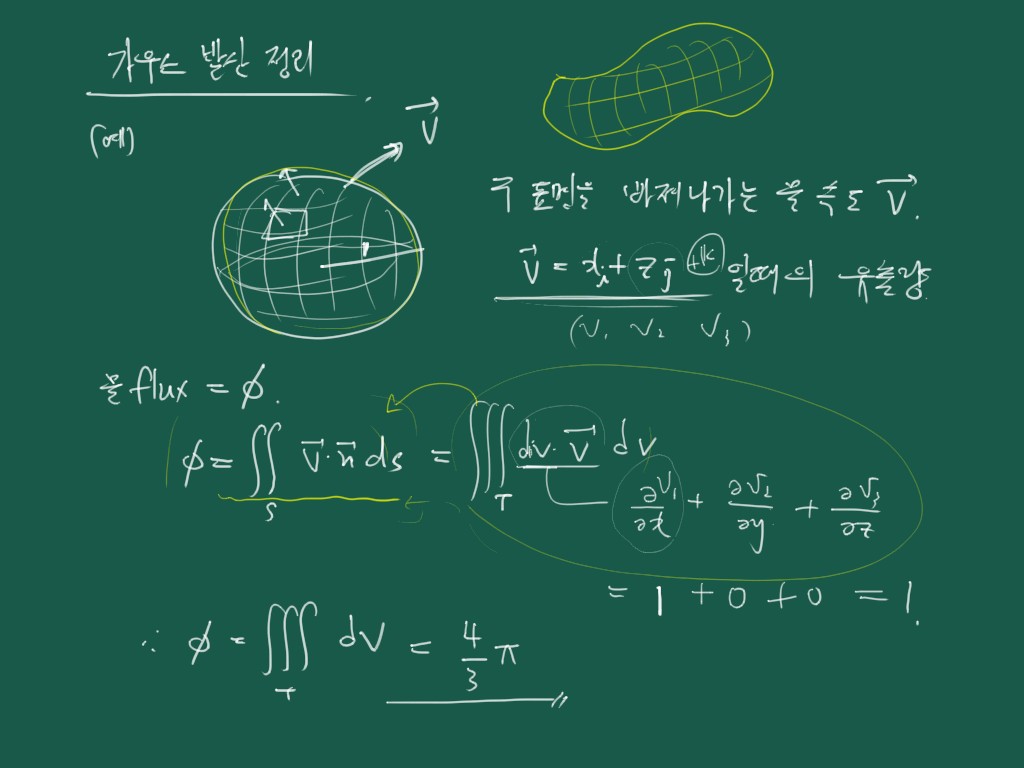 가우스 발산 정리
(예)
V⃗
r
구 표면을 빠져나가는 물 속도 V⃗.
V⃗ = xi + zj +k 일때의 유출량.
(V₁ V₂ V₃)
물 flux = φ.
φ = ∬_S V⃗·n⃗ ds = ∭_T div·V⃗ dV
∂V₁/∂x + ∂V₂/∂y + ∂V₃/∂z
= 1 + 0 + 0 = 1.
∴ φ = ∭_T dV = 4/3 π